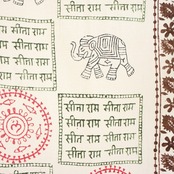 सीता राम सीता राम
सीता राम सीता राम
सीता राम सीता राम
सीता राम सीता राम
सीता राम सीता राम
सीता राम सीता राम
सीता राम सीता राम
सीता राम सीता राम